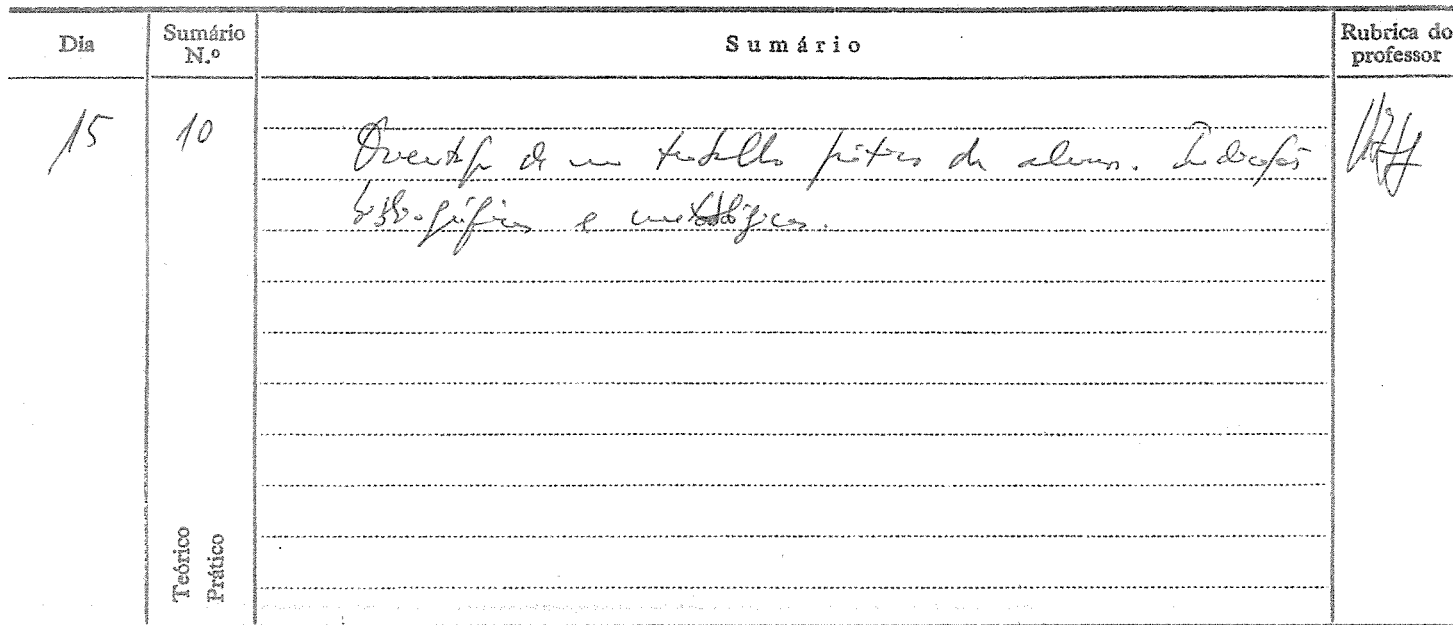 Dia Sumário N.º Sumário Rubrica do professor
15 10 de um trabalho prático de alunos. Indicações
bibliográficas e metodológicas.
Teórico
Prático